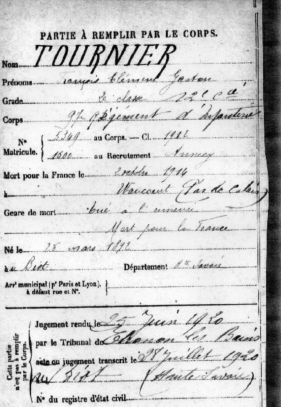 PARTIE À REMPLIR PAR LE CORPS.
Nom TOURNIER
Prénoms François Clément Gaston
Grade 2e classe
Corps 97e Régiment d'Infanterie
N° Matricule. 5349 au Corps. — Cl. 1912
1600 au Recrutement Annecy
Mort pour la France le 2 octobre 1914
à Wancourt (Pas de Calais)
Genre de mort tué à l'ennemi
Mort pour la France
Né le 28 mars 1892
à Département Hte Savoie
Arrt municipal (pr Paris et Lyon),
à défaut rue et N°.
Cette partie n'est pas à remplir par le Corps.
Jugement rendu le 25 Juin 1920
par le Tribunal de Thonon les Bains
acte ou jugement transcrit le 28 Juillet 1920
(Haute Savoie)
N° du registre d'état civil